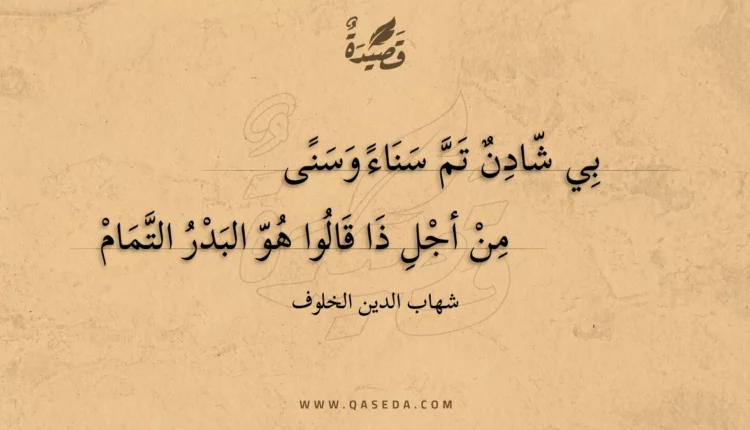 قَصِيدَةٌ
بِي شَّادِنٌ تَمَّ سَنَاءً وَسَنًى
مِنْ أجْلِ ذَا قَالُوا هُوّ البَدْرُ التَّمَامْ
شهاب الدين الخلوف
WWW.QASEDA.COM